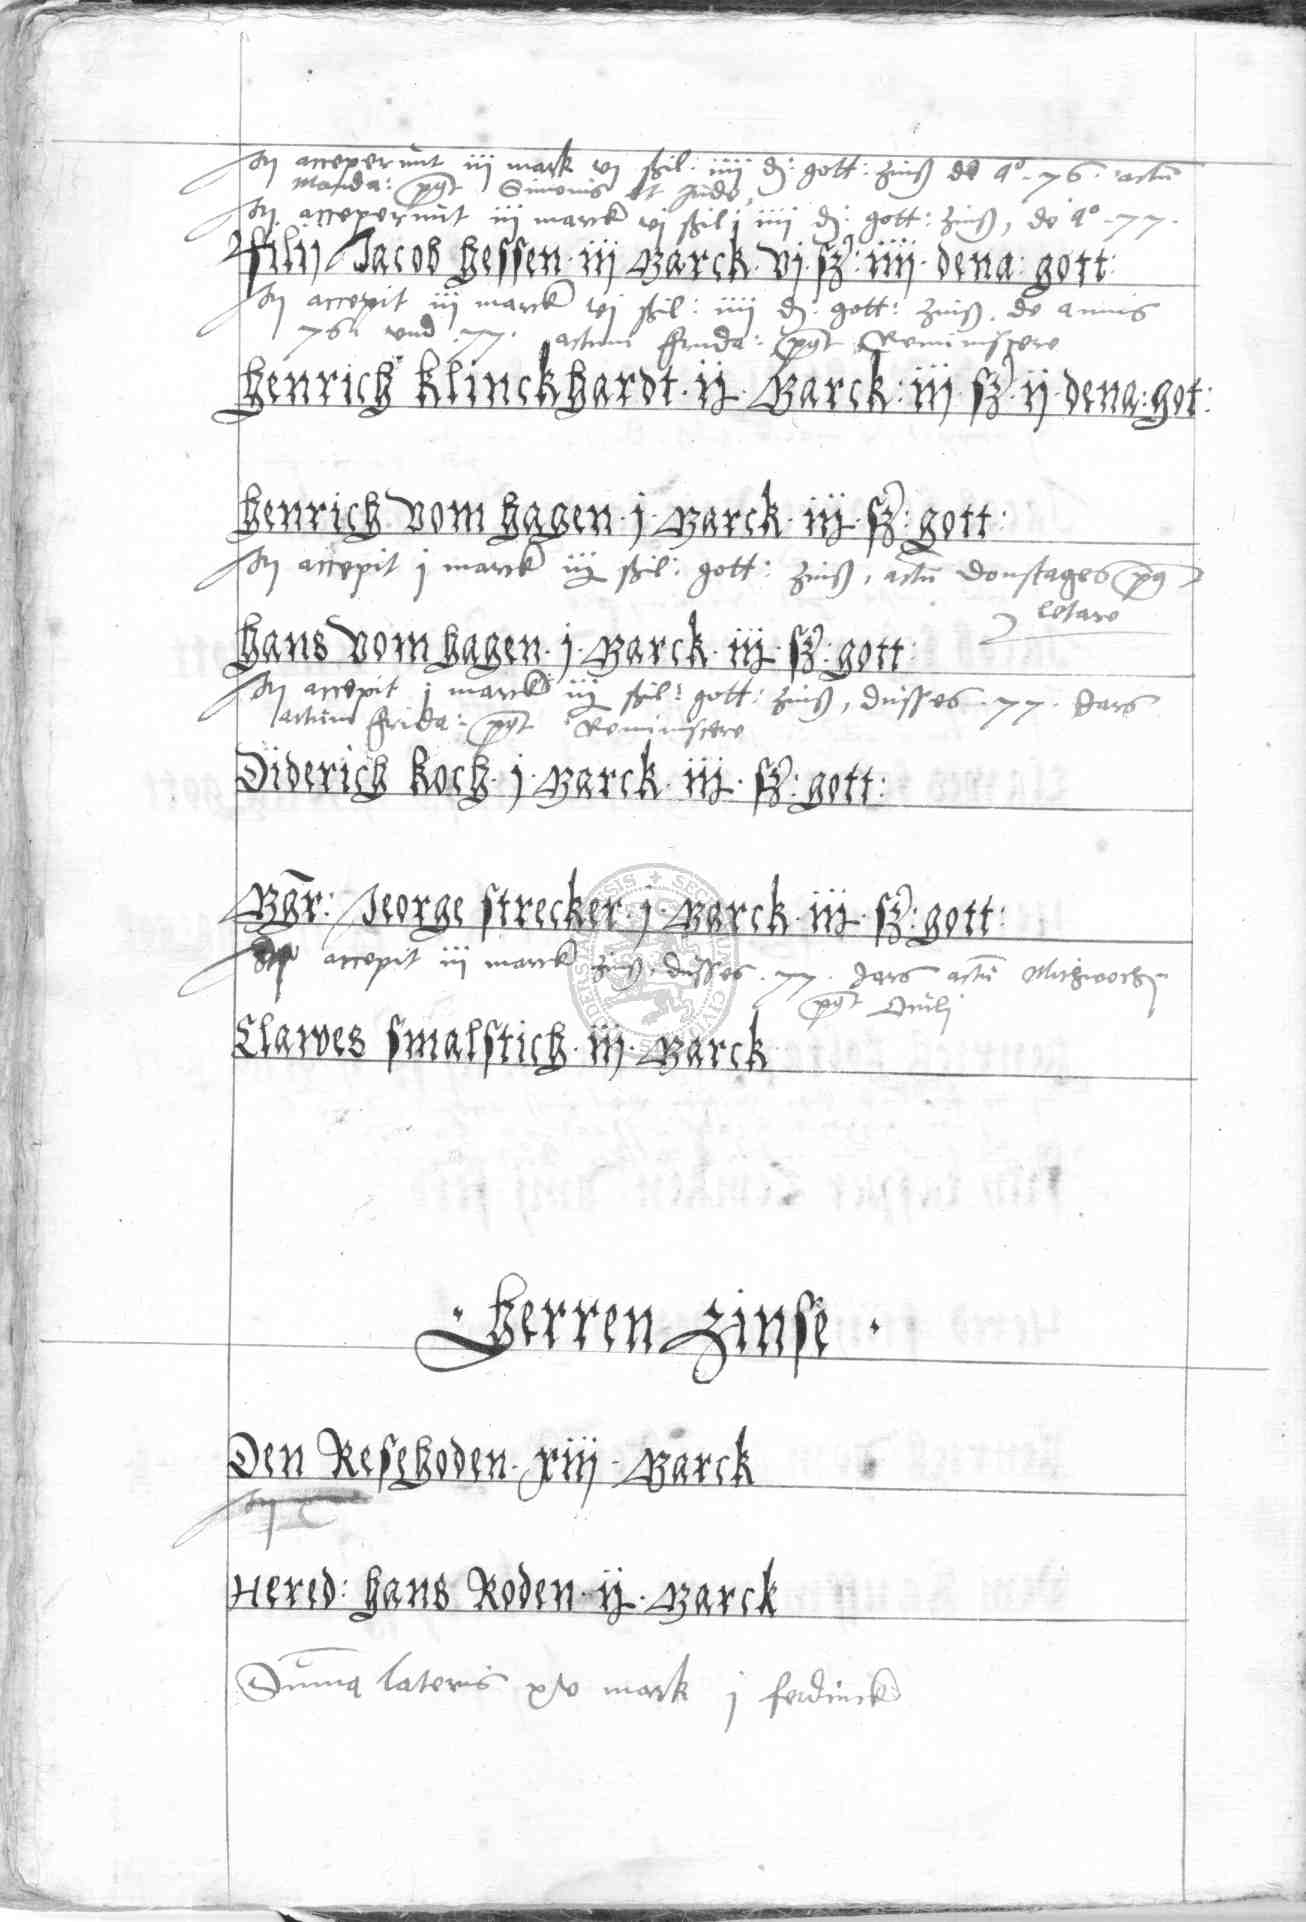 acceperunt iii mark vi ßil: iiii d: gott: zinß de a° 76. actu
Manda: pgt Simonis et Jude,
acceperunt iij marck vj ßil: iiii d: gott: zinß, de a° 77.
filij Jacob hessen · iij Marck · vj · sz: iiij · dena: gott:
accepit iij marck vj ßil: iiii d: gott: zinß. de annis
76 und .77. actum frida: pgt Reminiscere
henrich klinckhardt · ij · Marck : iij · sz · ij · dena: got:
henrich vom hagen · j · Marck · iij · sz: gott:
accepit j marck iij ßil: gott: zinß, actu donstages pg
letare
hans vom hagen · j · Marck · iij · sz: gott:
accepit j marck iij ßil: gott: zinß, disses .77. Jars
actum frida: pgt Reminiscere
Diderich koch · j · Marck · iij · sz: gott:
Mgr: Jeorge strecker · j · Marck · iij · sz: gott:
accepit iij marck zinß, disses .77. Jars actu Mitzwochen
pgt Oculj
Clawes smalstich · iij · Marck
· herren zinse ·
Den Resehoden · xiij · Marck
Hered: hans Roden · ij · Marck
Suma lateris xlv mark j ferdinck